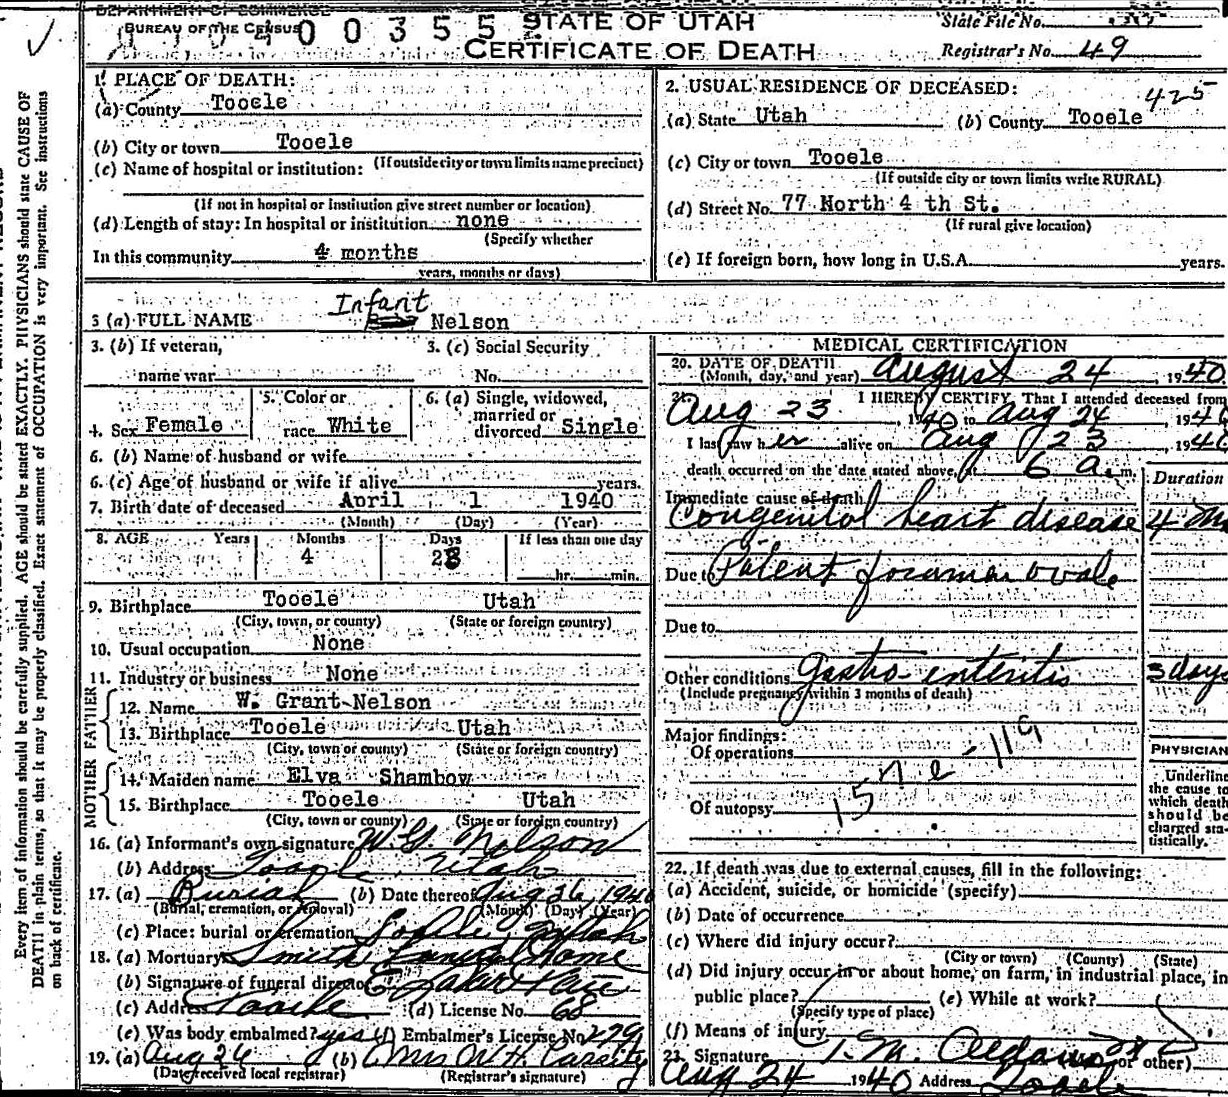 DEPARTMENT OF COMMERCE
BUREAU OF THE CENSUS
0 0 3 5 5
STATE OF UTAH
CERTIFICATE OF DEATH
State File No.
Registrar's No. 49
Every item of information should be carefully supplied. AGE should be stated EXACTLY. PHYSICIANS should state CAUSE OF
DEATH in plain terms, so that it may be properly classified. Exact statement of OCCUPATION is very important. See instructions
on back of certificate.
1. PLACE OF DEATH:
(a) County Tooele
(b) City or town Tooele
(If outside city or town limits name precinct)
(c) Name of hospital or institution:
(If not in hospital or Institution give street number or location)
(d) Length of stay: In hospital or institution none
(Specify whether
In this community 4 months
years, months or days)
2. USUAL RESIDENCE OF DECEASED:
425
(a) State Utah (b) County Tooele
(c) City or town Tooele
(If outside city or town limits write RURAL)
(d) Street No. 77 North 4 th St.
(If rural give location)
(e) If foreign born, how long in U.S.A. years.
3 (a) FULL NAME Infant Nelson
3. (b) If veteran,
name war
3. (c) Social Security
No.
4. Sex Female
5. Color or
race White
6. (a) Single, widowed,
married or
divorced Single
6. (b) Name of husband or wife
6. (c) Age of husband or wife if alive years.
7. Birth date of deceased April 1 1940
(Month) (Day) (Year)
8. AGE Years Months Days If less than one day
4 23 hr. min.
9. Birthplace Tooele Utah
(City, town, or county) (State or foreign country)
10. Usual occupation None
11. Industry or business None
FATHER
12. Name W. Grant Nelson
13. Birthplace Tooele Utah
(City, town or county) (State or foreign country)
MOTHER
14. Maiden name Elva Shambow
15. Birthplace Tooele Utah
(City, town or county) (State or foreign country)
16. (a) Informant's own signature W. G. Nelson
(b) Address Tooele, Utah
17. (a) Burial (b) Date thereof Aug 26, 1940
(Burial, cremation, or removal) (Month) (Day) (Year)
(c) Place: burial or cremation Tooele, Utah
18. (a) Mortuary Smith Funeral Home
(b) Signature of funeral director
(c) Address Tooele (d) License No. 68
(e) Was body embalmed? yes (f) Embalmer's License No. 279
19. (a) Aug 26 (b) Mrs W. H.
(Date received local registrar) (Registrar's signature)
MEDICAL CERTIFICATION
20. DATE OF DEATH
(Month, day, and year) August 24, 1940
21. I HEREBY CERTIFY, That I attended deceased from
Aug 23, 1940 to Aug 24, 1940
I last saw her alive on Aug 23, 1940
death occurred on the date stated above, at 6 a. m.
Duration
Immediate cause of death
Congenital heart disease 4 Mo
Due to Patent foramen ovale
Due to
Other conditions gastro-enteritis 3 days
(Include pregnancy within 3 months of death)
Major findings:
Of operations
157 e - 119
Of autopsy
PHYSICIAN
Underline
the cause to
which death
should be
charged sta-
tistically.
22. If death was due to external causes, fill in the following:
(a) Accident, suicide, or homicide (specify)
(b) Date of occurrence
(c) Where did injury occur?
(City or town) (County) (State)
(d) Did injury occur in or about home, on farm, in industrial place, in
public place? (e) While at work?
(Specify type of place)
(f) Means of injury
23. Signature T. M. Aldous or other)
Aug 24 1940 Address Tooele